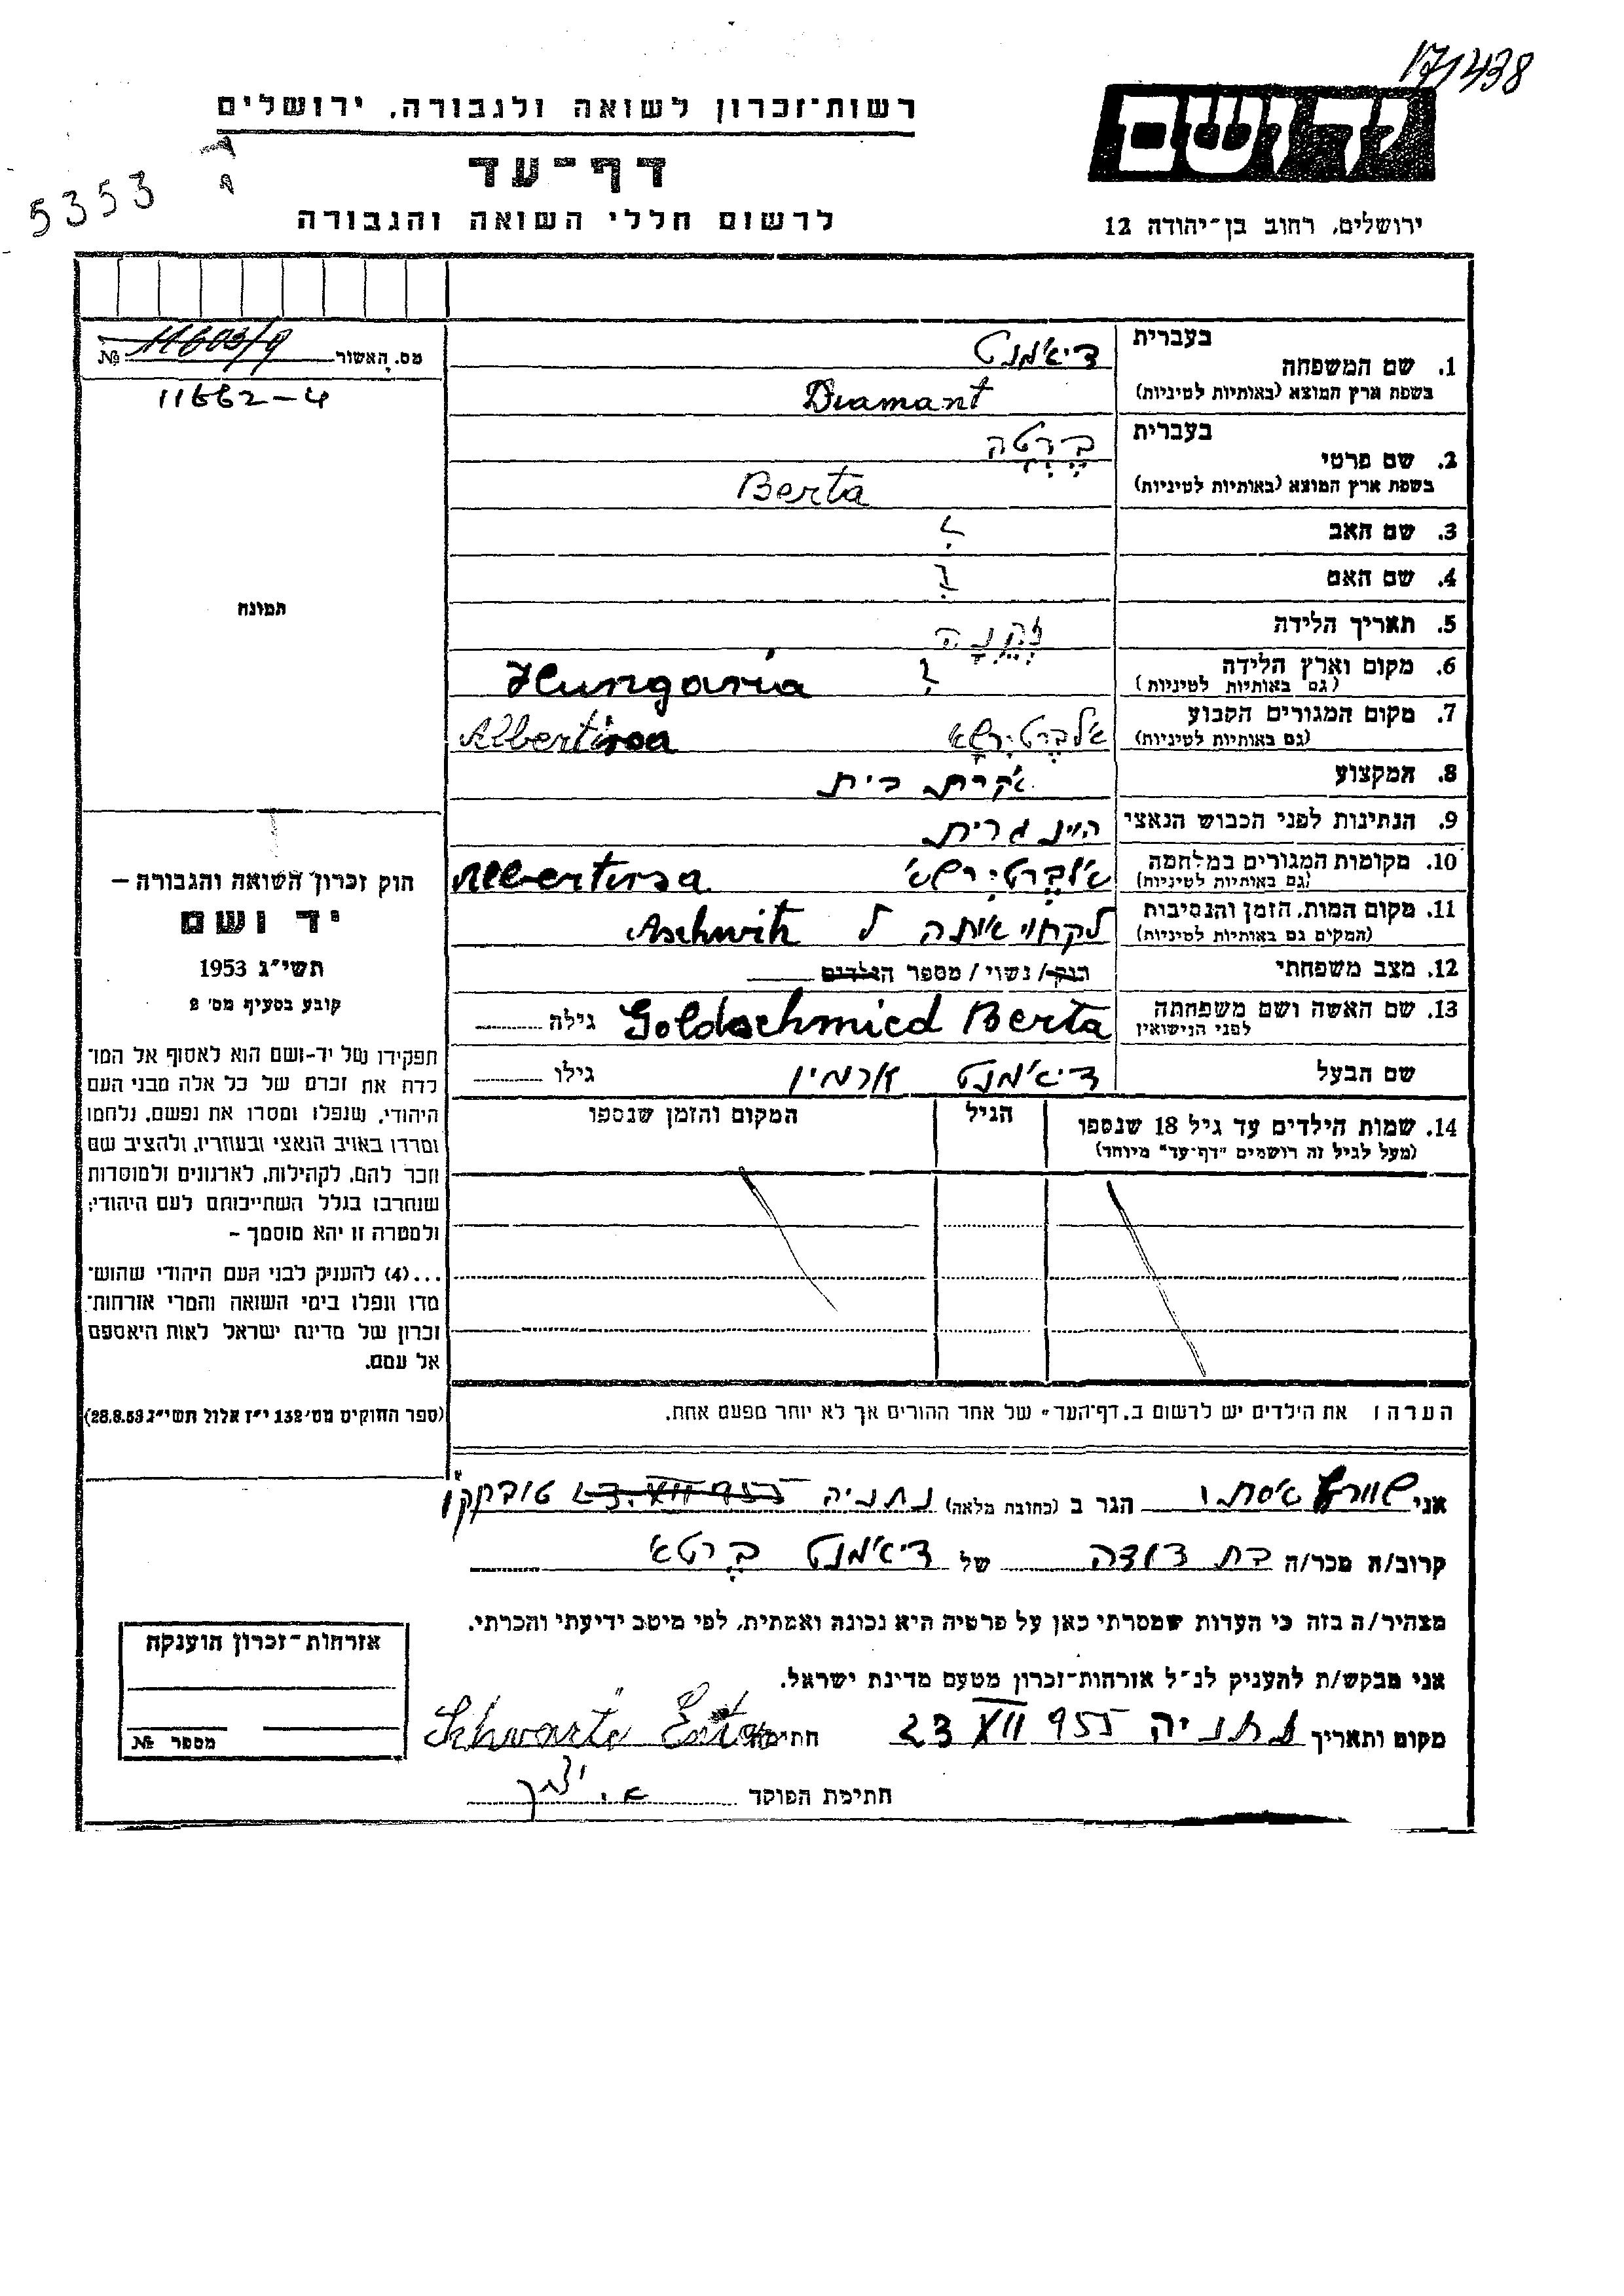 171438
רשות־זכרון לשואה ולגבורה, ירושלים
דף־עד
5353
לרשום חללי השואה והגבורה
ירושלים, רחוב בן־יהודה 12
מס. האשור 11603/9 №
11662-4
תמונה
1. שם המשפחה בעברית דיאמנט
בשפת ארץ המוצא (באותיות לטיניות) Diamant
2. שם פרטי בעברית בֶּרְטָה
בשפת ארץ המוצא (באותיות לטיניות) Berta
3. שם האב ?
4. שם האם ?
5. תאריך הלידה זְקֵנָה
6. מקום וארץ הלידה ? Hungaria
(גם באותיות לטיניות)
7. מקום המגורים הקבוע אלברטירשא Albertirsa
(גם באותיות לטיניות)
8. המקצוע עקרת בית
9. הנתינות לפני הכבוש הנאצי הונגרית
10. מקומות המגורים במלחמה אלברטירשא Albertirsa
(גם באותיות לטיניות)
11. מקום המות, הזמן והנסיבות לקחו אותה ל Aschwitz
(המקום גם באותיות לטיניות)
12. מצב משפחתי רווק/ נשוי / מספר הילדים
13. שם האשה ושם משפחתה Goldschmied Berta גילה
לפני הנישואין
שם הבעל דיאמנט ארמין גילו
14. שמות הילדים עד גיל 18 שנספו הגיל המקום והזמן שנספו
(מעל לגיל זה רושמים "דף־עד" מיוחד)
הערה: את הילדים יש לרשום ב„דף־העד" של אחד ההורים אך לא יותר מפעם אחת.
חוק זכרון השואה והגבורה –
יד ושם
תשי״ג 1953
קובע בסעיף מס׳ 2
תפקידו של יד-ושם הוא לאסוף אל המו־
לדת את זכרם של כל אלה מבני העם
היהודי, שנפלו ומסרו את נפשם, נלחמו
ומרדו באויב הנאצי ובעוזריו, ולהציב שם
וזכר להם, לקהילות, לארגונים ולמוסדות
שנחרבו בגלל השתייכותם לעם היהודי;
ולמטרה זו יהא מוסמך –
...(4) להעניק לבני העם היהודי שהוש־
מדו ונפלו בימי השואה והמרי אזרחות־
זכרון של מדינת ישראל לאות היאספם
אל עמם.
(ספר החוקים מס׳ 132 י״ז אלול תשי״ג 28.8.53)
אני שוורץ אסתר הגר ב (כתובת מלאה) נתניה 23.XII 955
קרוב/ה מכר/ה בת דודה של דיאמנט ברטא
מצהיר/ה בזה כי העדות שמסרתי כאן על פרטיה היא נכונה ואמתית, לפי מיטב ידיעתי והכרתי.
אני מבקש/ת להעניק לנ״ל אזרחות־זכרון מטעם מדינת ישראל.
מקום ותאריך נתניה 23 XII 955 חתימה Schwartz Ester
חתימת הפוקד
אזרחות־זכרון הוענקה
מספר №